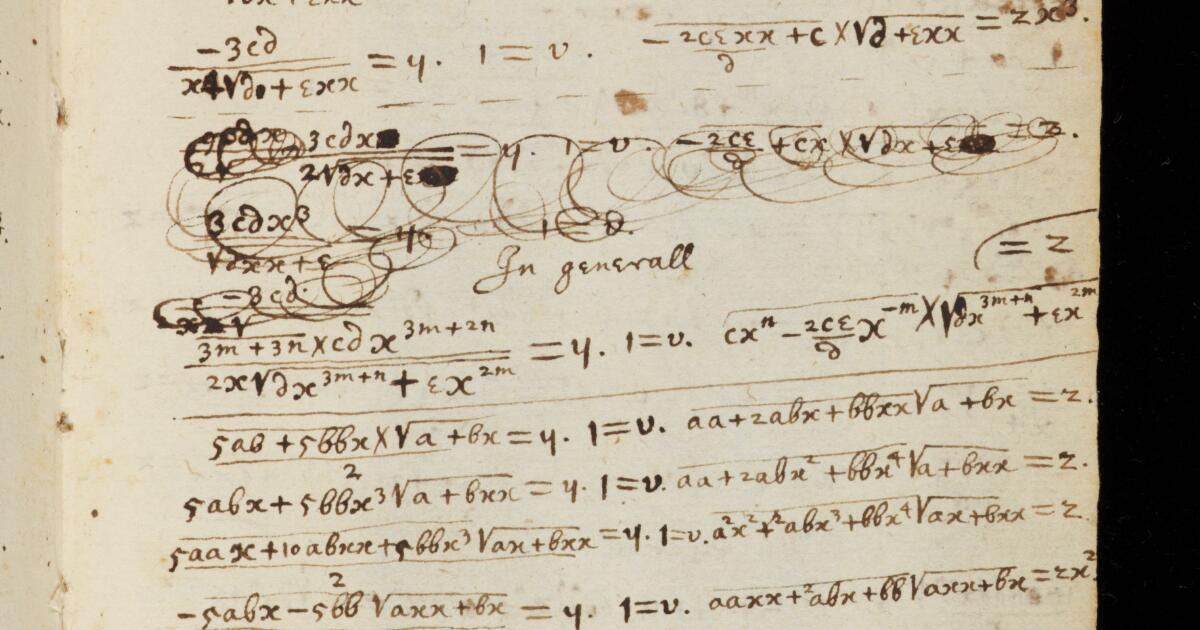 -3cd / x4√d+εxx = y. 1 = v. -2cεxx/d + c × √d+εxx = zx³.
3cdx / 2√dx+ε = y. 1 = v. -2cε/d + cx × √dx+ε = z.
3cdx³ / √dxx+ε = y. 1 = v.
In generall
= z
-3cd
3m+3n × cdx^3m+2n / 2x√dx^3m+n + εx^2m = y. 1 = v. cx^n - 2cε/d x^-m × √dx^3m+n + εx^2m
5ab + 5bbx × √a+bx / 2 = y. 1 = v. aa+2abx+bbxx√a+bx = z.
5abx + 5bbx³√a+bxx = y. 1 = v. aa+2abx²+bbx⁴√a+bxx = z.
5aax+10abxx+5bbx³√ax+bxx / 2 = y. 1 = v. a²x²+2abx³+bbx⁴√ax+bxx = z
-5abx-5bb√axx+bx = y. 1 = v. aaxx+2abx+bb√axx+bx = zx².